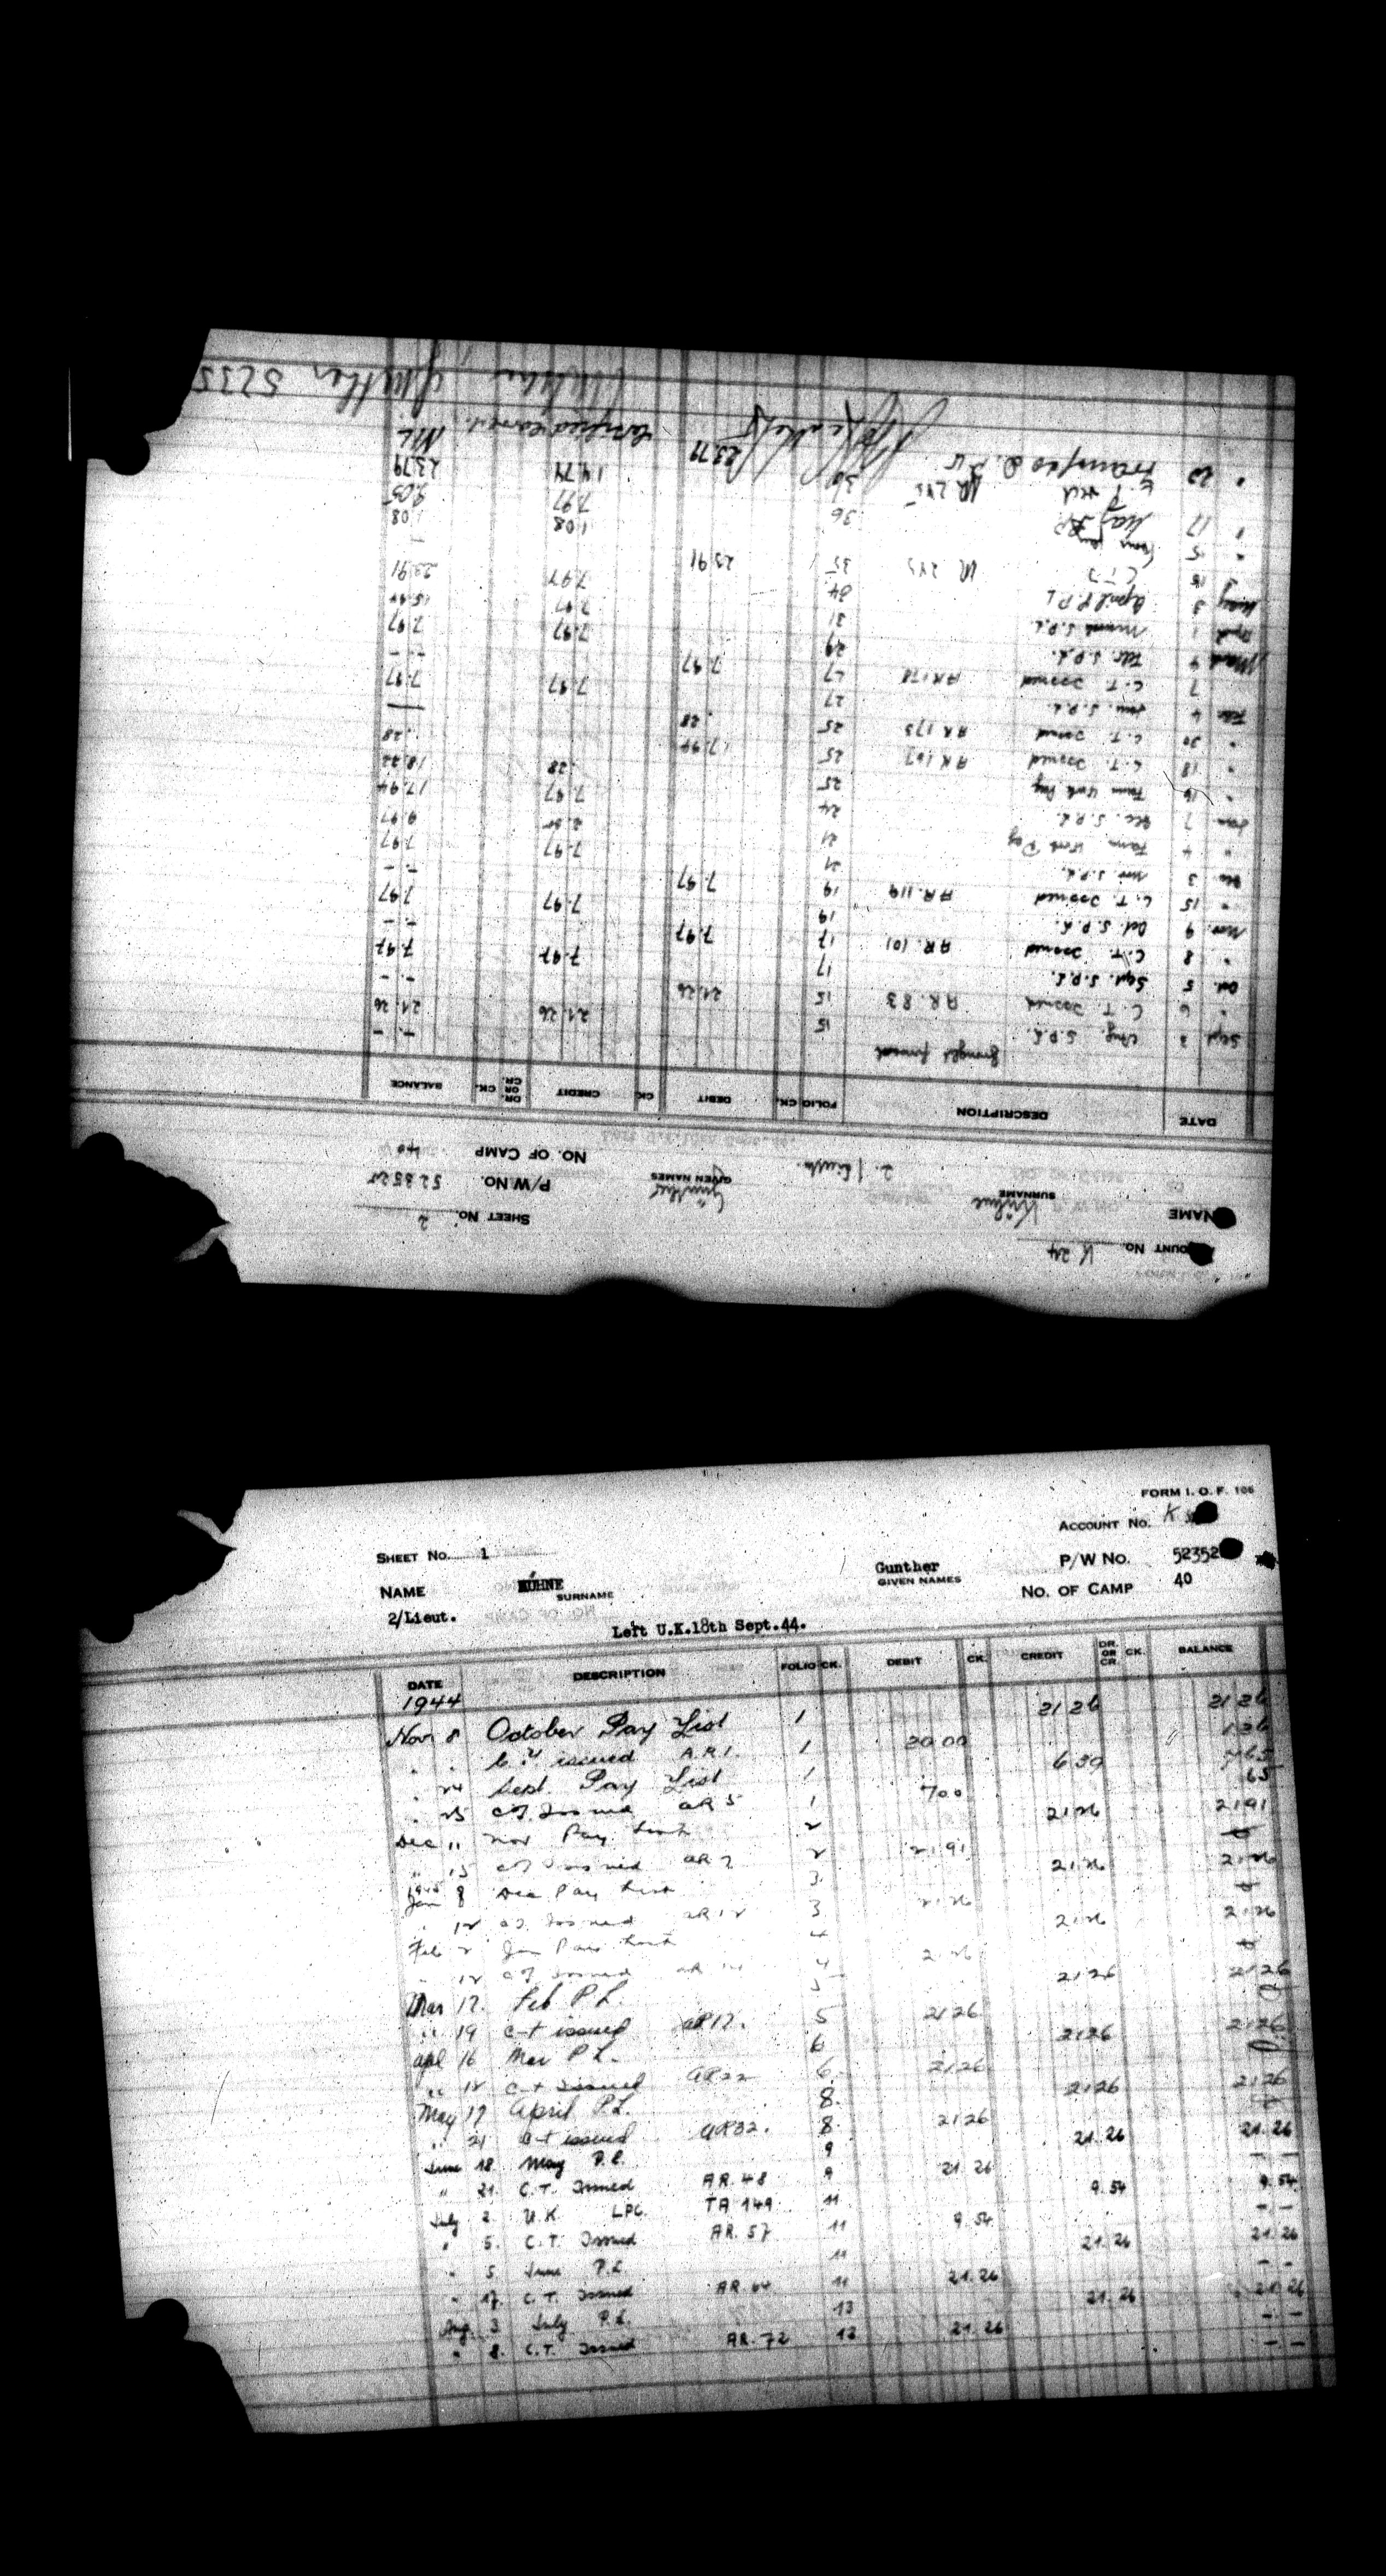 FORM I. O. F. 106
ACCOUNT No. K
SHEET No. 1
P/W No. 52352
NAME KÜHNE Gunther
SURNAME GIVEN NAMES
No. OF CAMP 40
2/Lieut.
Left U.K.18th Sept.44.
DATE DESCRIPTION FOLIO CK. DEBIT CK. CREDIT DR. OR CR. CK. BALANCE
1944
Nov 8 October Pay List 1 21 26 21 26
" " issued A.R 1. 1 20 00 1 26
" 24 Sept. Pay List 1 6 39 7 65
" 25 CT. Issued AR 5 1 7 00 65
Dec 11 Nov Pay List 2 21 26 21 91
" 15 CT Issued AR 7 2 21 91
1945
Jan 8 Dec Pay List 3 21 26 21 26
" 12 CT. Issued AR 12 3 21 26
Feb 2 Jan Pay List 4 21 26 21 26
" 12 CT Issued AR 14 4 21 26
Mar 17. Feb P L. 5 21 26 21 26
" 19 C-T issued AR17. 5 21 26
Apl 16 Mar P L. 6 21 26 21 26
" C-T issued AR22 6. 21 26
May 17 April P.L. 8. 21 26 21 26
" 21 C-T issued AR32. 8. 21 26
June 18 May P.L. 9 21. 26 21. 26
" 21. C.T. Issued AR. 48 9 21. 26 - -
July 2. U.K. LPC. TA 149. 11 9. 54 9. 54
" 5. C.T. Issued AR. 57 11 9. 54 - -
" 5 June P.L. 11 21. 26 21. 26
" 17. C.T. Issued AR. 64 11 21. 26 - -
Aug. 3 July P.L. 13 21. 26 21. 26
" 8. C.T. Issued AR. 72 13 21. 26 - -
OUNT No. K 24
SHEET No. 2
NAME Kühne Günther
SURNAME GIVEN NAMES
2. / Lieut.
P/W No.
NO. OF CAMP 40
DATE DESCRIPTION FOLIO CK. DEBIT CK. CREDIT DR. OR CR. CK. BALANCE
Brought forward - -
Sept 3 Aug. S.P.L. 15 21. 26 21. 26
" 6 C.T. Issued AR. 83 15 21. 26 - -
Oct. 5 Sept. S.P.L. 17 7. 97 7. 97
" 8 C.T. Issued AR. 101 17 7. 97 - -
Nov. 9 Oct. S.P.L. 19 7. 97 7. 97
" 15 C.T. Issued AR. 119 19 7. 97 - -
Dec 3 Nov. S.P.L. 21 7. 97 7. 97
" 4 Farm Work Pay 21 9. 97
Jan 7 Dec. S.P.L. 24 7. 97 17. 94
" 16 Farm Work Pay 25 . 28 18. 22
" 18 C.T. Issued AR 167 25 17. 94 . 28
" 30 C.T. Issued AR 173 25 . 28
Feb 4 Jan. S.P.L. 27 7. 97 7. 97
7 C.T. Issued AR 178 27 7. 97 - -
March 4 Feb. S.P.L. 29 7. 97 7. 97
April 1 March S.P.L. 31 7. 97 15. 94
May 3 April S.P.L. 34 7. 97 23. 91
" 15 C T I AR 245 35 23 91
" 15 1 08 1 08
" 17 May 36 7. 97 9. 05
AR 245 36 14 74 23 79
" 20 Transfer 23 79 NIL
Certified correct.
Günther 5235